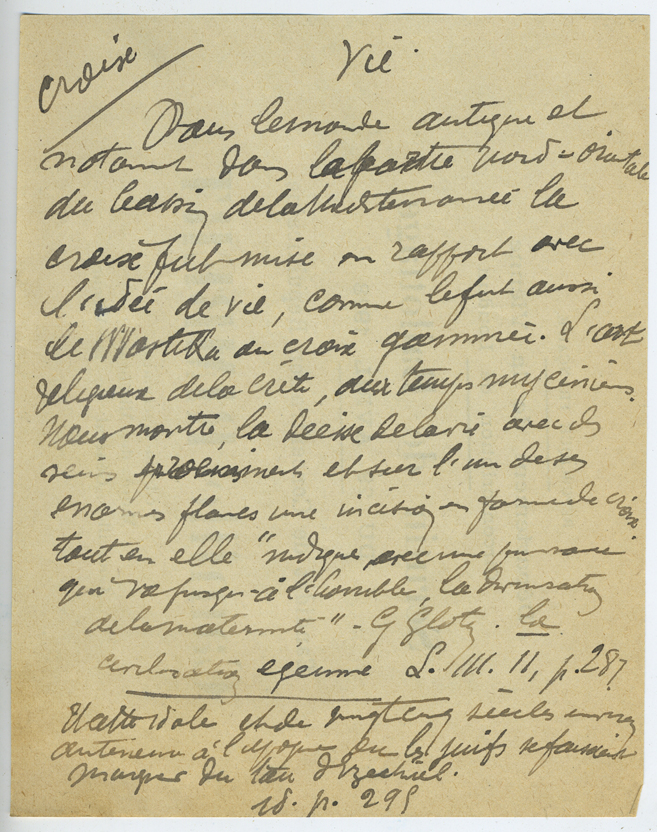 croix
Vie.
Dans le monde antique et
notamt dans la partie nord-orientale
du bassin de la Mediterranée la
croix fut mise en rapport avec
l'idée de vie, comme le fut aussi
le swastika ou croix gammée. L'art
religieux de la Crète, aux temps mycéniens,
nous montre la déesse de la vie avec des
seins proéminents et sur l'un de ses
enormes flancs une incision en forme de croix.
tout en elle "indique avec une puissance
qui va jusqu'à l'horrible, la divinisation
de la maternité" - G Glotz. La
civilisation egéenne L. III. II, p. 287.
et de vingt cinq siècles environ
anterieur à l'époque ou les juifs se faisaient
marquer du tau d'Ezechiel.
id. p. 295